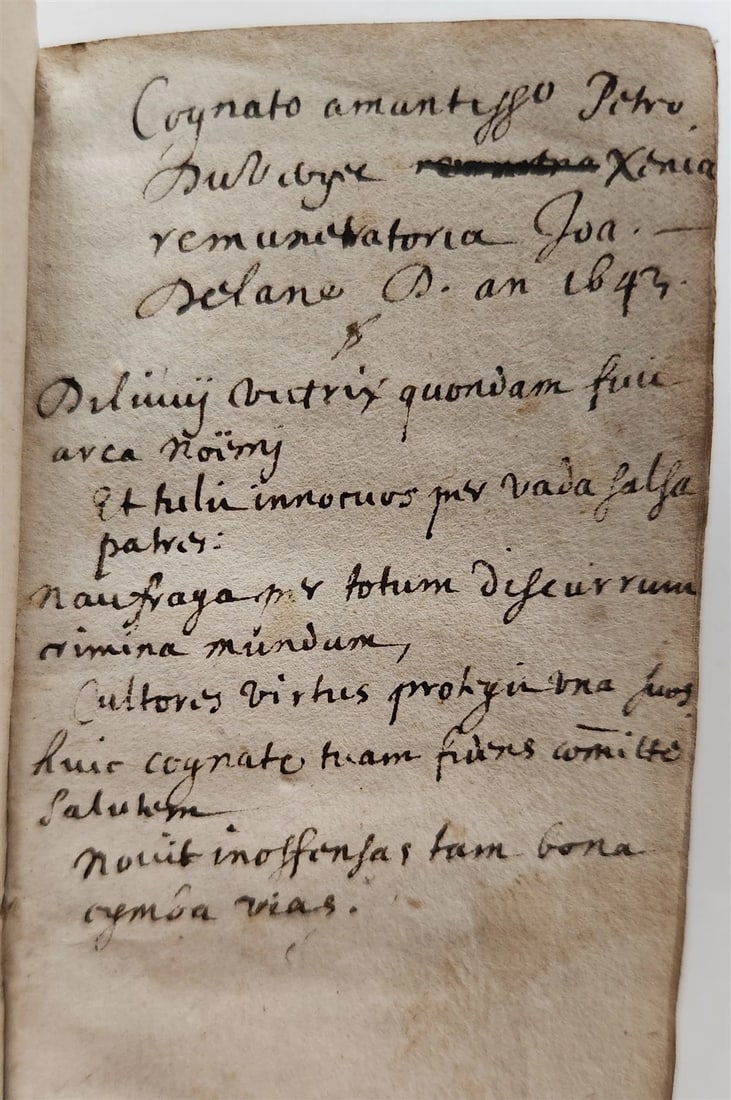 Cognato amantisso Petro
Xenia
remuneratoria Joa.
Delano D. an 1643.
Diluvij victrix quondam fuit
arca Noëmj
Et tulit innocuos per vada salsa
patres:
Naufraga per totum discurrunt
crimina mundum,
Cultores virtus protegit una suos.
huic cognate tuam fidens com̄itte
salutem
Novit inoffensas tam bona
cymba vias.